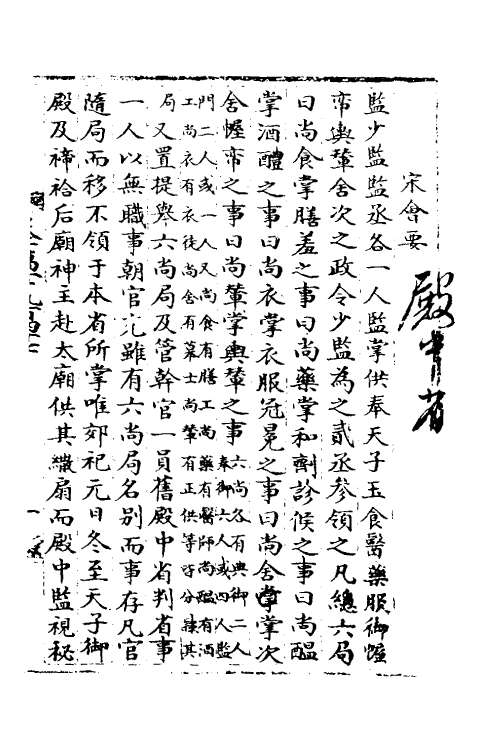 殿中省
宋會要
監少監監丞各一人監掌供奉天子玉食醫藥服御幄
帟輿輦舍次之政令少監為之貳丞參領之凡總六局
曰尚食掌膳羞之事曰尚藥掌和劑診候之事曰尚醞
掌酒醴之事曰尚衣掌衣服冠冕之事曰尚舍掌次
舍幄帟之事曰尚輦掌輿輦之事六尚各有典御二人
奉御六人或四人監
門二人或一人又尚食有膳工尚藥有醫師尚醞有酒
工尚衣有衣徒尚舍有幕士尚輦有正供等皆分隸其
局又置提舉六尚局及管幹官一員舊殿中省判省事
一人以無職事朝官充雖有六尚局名別而事存凡官
隨局而移不領于本省所掌唯郊祀元日冬至天子御
殿及禘祫后廟神主赴太廟供其繖扇而殿中監視秘
一